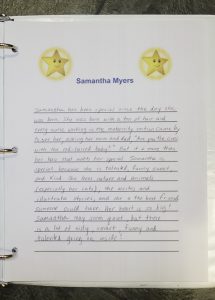 Samantha Myers
Samantha has been special since the day she
was born. She was born with a ton of hair and
every nurse working in the maternity section came by
to see her, asking her mom and dad, "Are you the ones
with the red-haired baby?" But it is more than
her hair that makes her special. Samantha is
special because she is talented, funny, sweet,
and kind. She loves nature and animals
(especially her cats), she writes and
illustrates stories, and she is the best friend
someone could have. Her heart is so big!
Samantha may seem quiet, but there
is a lot of silly, sweet, funny and
talented going on inside!